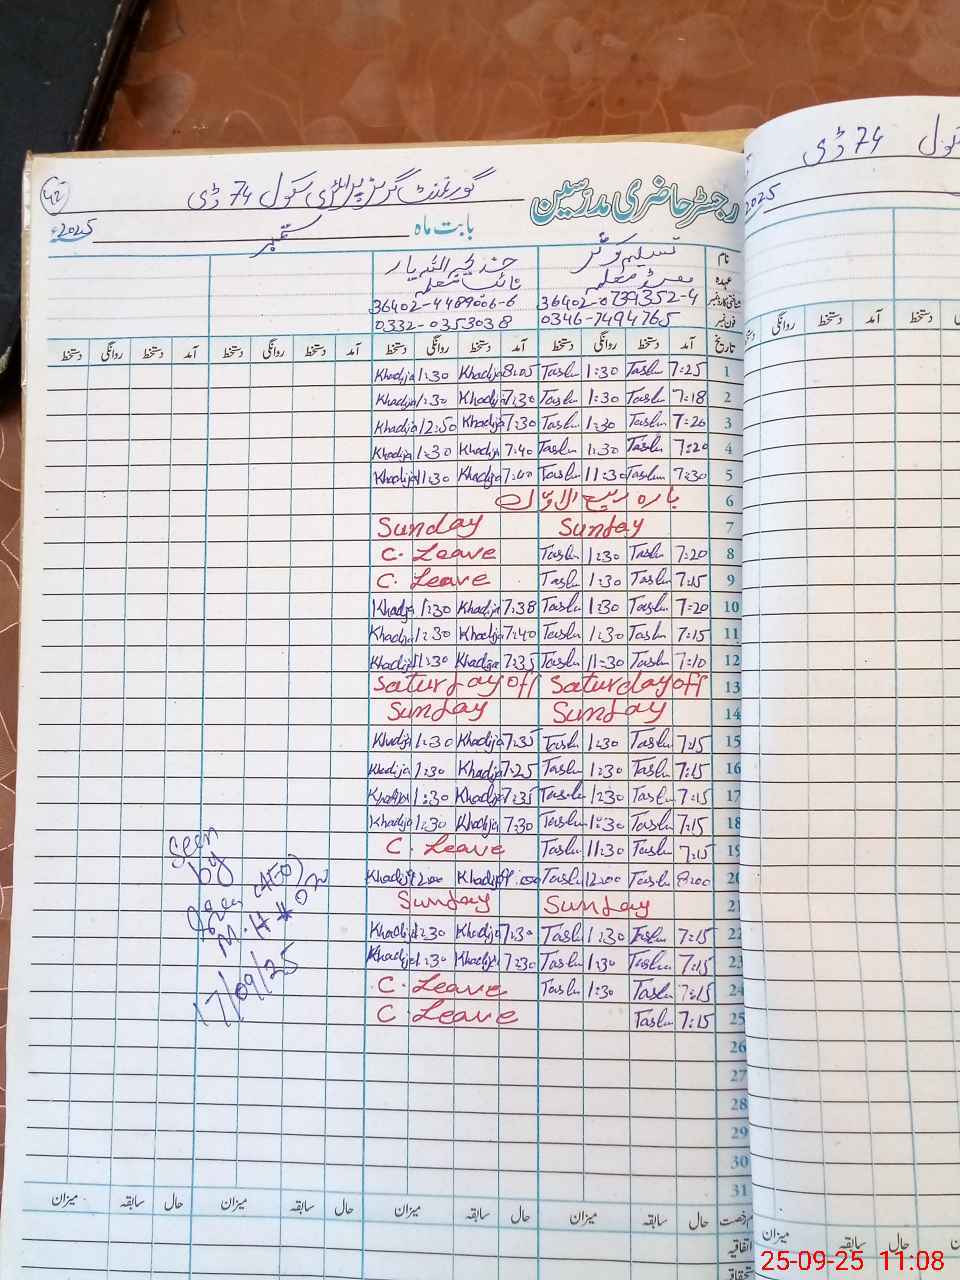 رجسٹر حاضری مدرسین گورنمنٹ گرلز پرائمری سکول 74 ڈی 42
بابت ماہ ستمبر 2025ء
نام تسلیم کوثر خدیجہ اللہ یار
عہدہ معلمہ معلمہ
شناختی کارڈ نمبر 36402-0739352-4 36402-4489606-6
فون نمبر 0346-7494765 0332-0353038
تاریخ آمد دستخط روانگی دستخط آمد دستخط روانگی دستخط آمد دستخط روانگی دستخط آمد دستخط روانگی دستخط
1 7:25 Taslu 1:30 Taslu 8:05 Khadija 1:30 Khadija
2 7:18 Taslu 1:30 Taslu 7:30 Khadija 1:30 Khadija
3 7:20 Taslu 1:30 Taslu 7:30 Khadija 12:50 Khadija
4 7:20 Taslu 1:30 Taslu 7:40 Khadija 1:30 Khadija
5 7:30 Taslu 11:30 Taslu 7:40 Khadija 11:30 Khadija
6 بارہ ربیع الاوّل
7 Sunday Sunday
8 7:20 Taslu 1:30 Taslu C. Leave
9 7:15 Taslu 1:30 Taslu C. Leave
10 7:20 Taslu 1:30 Taslu 7:38 Khadija 1:30 Khadija
11 7:15 Taslu 1:30 Taslu 7:40 Khadija 1:30 Khadija
12 7:10 Taslu 11:30 Taslu 7:35 Khadija 11:30 Khadija
13 Saturday off Saturday off
14 Sunday Sunday
15 7:15 Taslu 1:30 Taslu 7:35 Khadija 1:30 Khadija
16 7:15 Taslu 1:30 Taslu 7:25 Khadija 1:30 Khadija
17 7:15 Taslu 1:30 Taslu 7:35 Khadija 1:30 Khadija
18 7:15 Taslu 1:30 Taslu 7:30 Khadija 1:30 Khadija
19 7:15 Taslu 11:30 Taslu C. Leave
20 8:00 Taslu 12:00 Taslu Khadija 12:00 Khadija
21 Sunday Sunday
22 7:15 Taslu 1:30 Taslu 7:30 Khadija 1:30 Khadija
23 7:15 Taslu 1:30 Taslu 7:30 Khadija 1:30 Khadija
24 7:15 Taslu 1:30 Taslu C. Leave
25 7:15 Taslu C. Leave
26
27
28
29
30
31
حال سابقہ میزان حال سابقہ میزان حال سابقہ میزان حال سابقہ میزان
اتفاقیہ
Seen
by
(AEO)
M.H # 02
17/09/25
سکول 74 ڈی
2025
آمد دستخط روانگی دستخط
حال سابقہ میزان
25-09-25 11:08